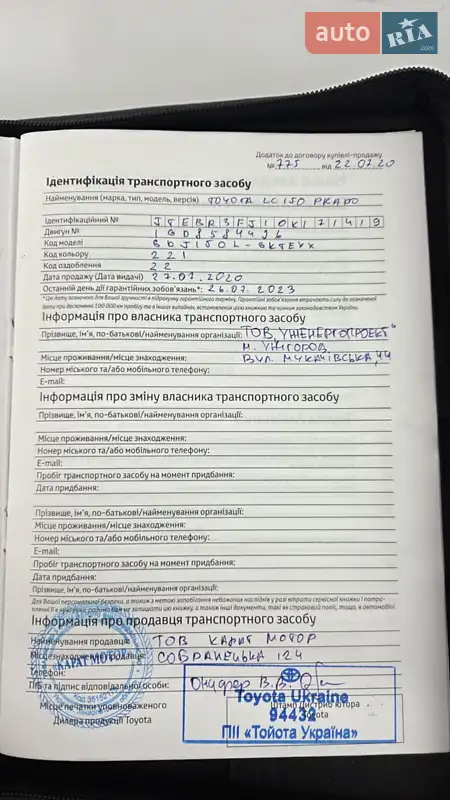 auto RIA .com
Додаток до договору купівлі-продажу
№ 775 від 22.07.20
Ідентифікація транспортного засобу
Найменування (марка, тип, модель, версія) TOYOTA LC 150 PRADO
Ідентифікаційний № JTEBR3FJ10K171419
Двигун № 1GD8584496
Код моделі GDJ150L-GKTEYX
Код кольору 221
Код оздоблення 22
Дата продажу (Дата видачі) 27.07.2020
Останній день дії гарантійних зобов'язань*: 26.07.2023
*Цю дату зазначено для Вашої зручності в підрахунку гарантійного терміну. Гарантійні зобов'язання втрачають силу до зазначеної
дати при досягненні 100 000 км пробігу та в інших випадках, встановлених цією книжкою та чинним законодавством України.
Інформація про власника транспортного засобу
Прізвище, ім'я, по-батькові/найменування організації: ТОВ "УЖЕНЕРГОПРОЕКТ"
м. УЖГОРОД,
Місце проживання/місце знаходження: ВУЛ. МУКАЧІВСЬКА, 44
Номер міського та/або мобільного телефону:
E-mail:
Інформація про зміну власника транспортного засобу
Прізвище, ім'я, по-батькові/найменування організації:
Місце проживання/місце знаходження:
Номер міського та/або мобільного телефону:
E-mail:
Пробіг транспортного засобу на момент придбання:
Дата придбання:
Прізвище, ім'я, по-батькові/найменування організації:
Місце проживання/місце знаходження:
Номер міського та/або мобільного телефону:
E-mail:
Пробіг транспортного засобу на момент придбання:
Дата придбання:
Прізвище, ім'я, по-батькові/найменування організації:
Для Вашої персональної безпеки, а також з метою запобігання небажаних наслідків у разі втрати сервісної книжки і потра-
Інформація про продавця транспортного засобу
Найменування продавця: ТОВ КАРАТ МОТОР
Місцезнаходження продавця: СОБРАНЕЦЬКА 124
Телефон:
ПІБ та підпис відповідальної особи:
Місце печатки уповноваженого
Дилера продукції Toyota
КАРАТ МОТОР
Штамп Дистриб'ютора
Toyota
Toyota Ukraine
94432
ПІІ «Тойота Україна»